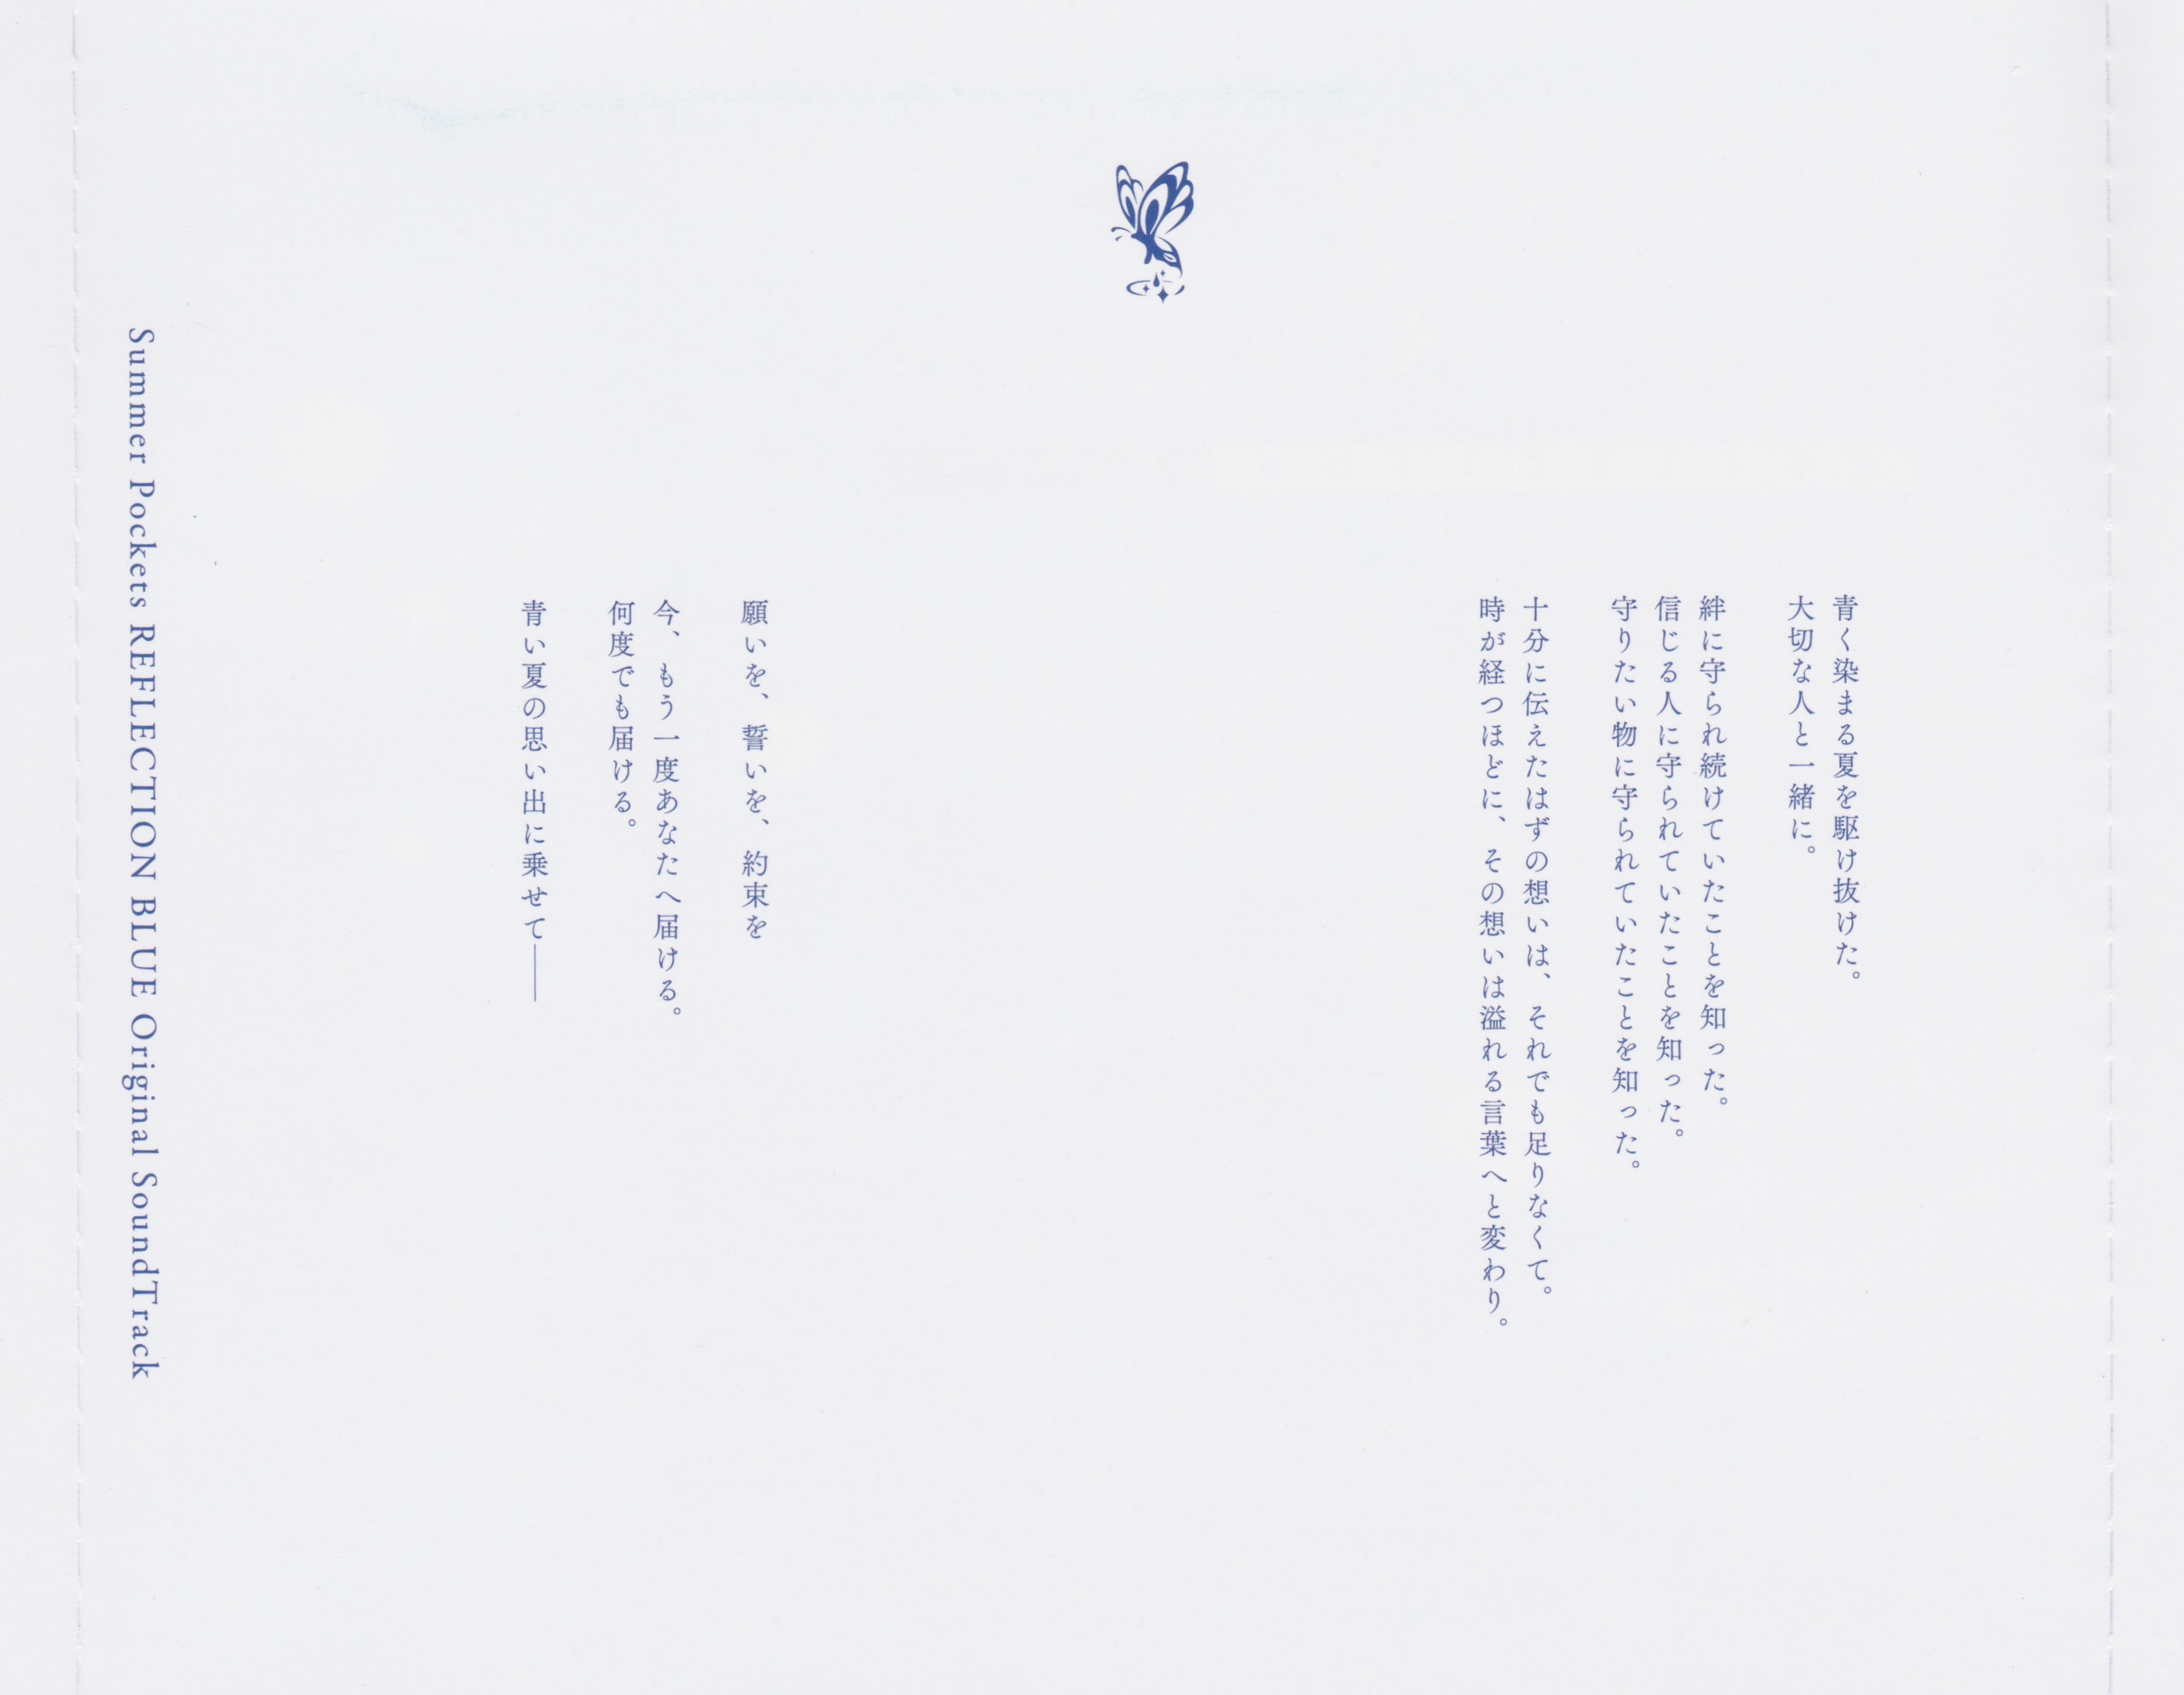 青く染まる夏を駆け抜けた。
大切な人と一緒に。
絆に守られ続けていたことを知った。
信じる人に守られていたことを知った。
守りたい物に守られていたことを知った。
十分に伝えたはずの想いは、それでも足りなくて。
時が経つほどに、その想いは溢れる言葉へと変わり。
願いを、誓いを、約束を
今、もう一度あなたへ届ける。
何度でも届ける。
青い夏の思い出に乗せて――
Summer Pockets REFLECTION BLUE Original SoundTrack